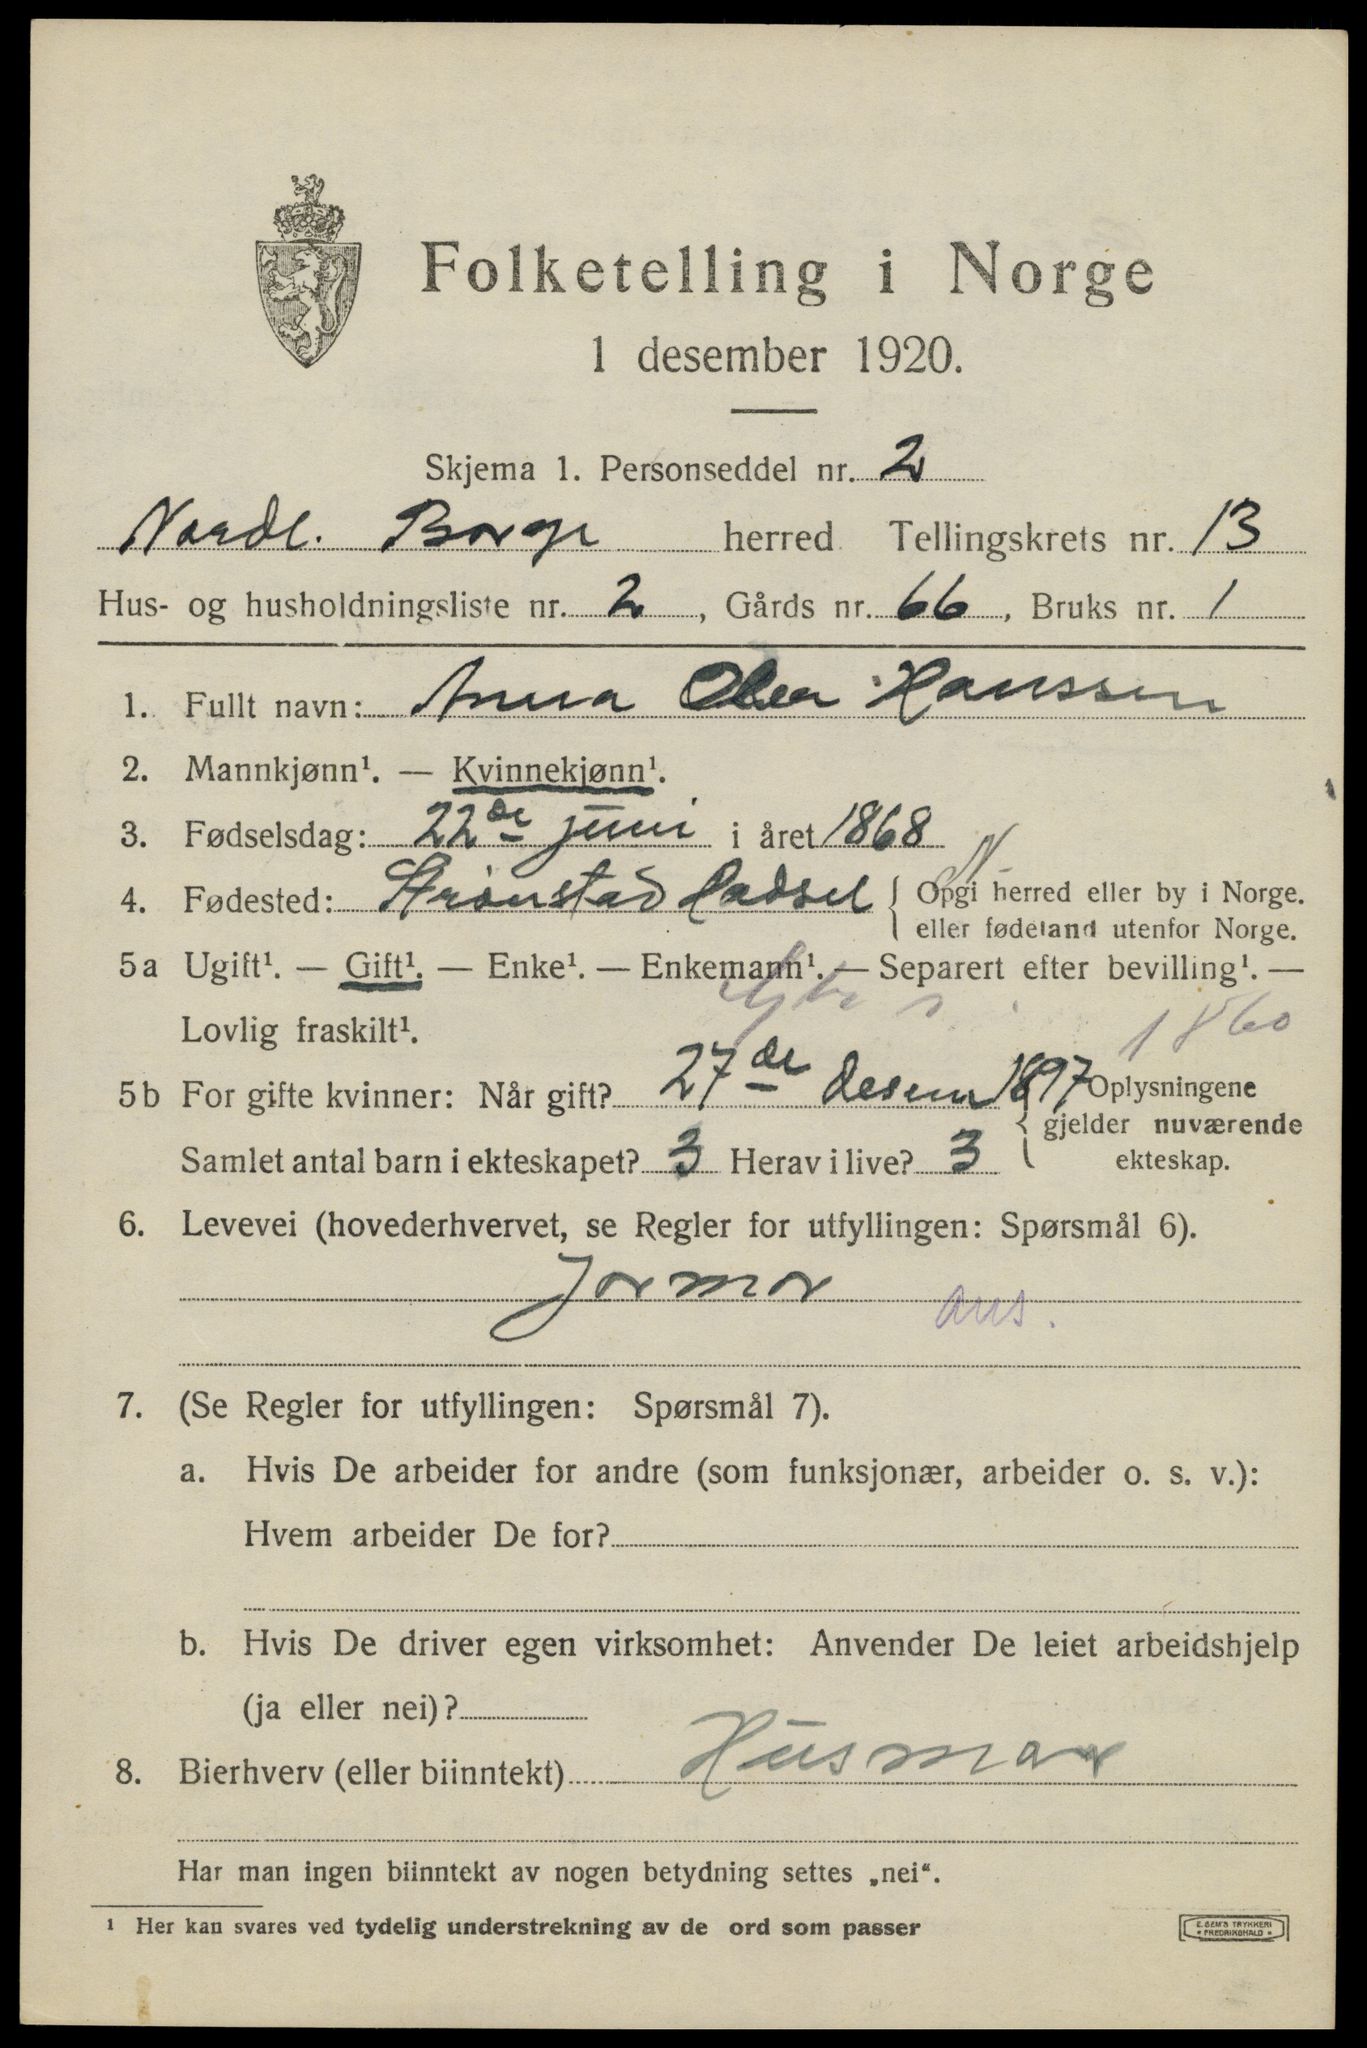 Folketelling i Norge
1 desember 1920.
Skjema 1. Personseddel nr. 2
Nordl. Borge herred Tellingskrets nr. 13
Hus- og husholdningsliste nr. 2, Gårds nr. 66, Bruks nr. 1
1. Fullt navn: Anna Olea Hanssen
2. Mannkjønn¹. — Kvinnekjønn¹.
3. Fødselsdag: 22de juni i året 1868
N
4. Fødested: Strønstad Hadsel { Opgi herred eller by i Norge.
eller fødeland utenfor Norge.
5a Ugift¹. — Gift¹. — Enke¹. — Enkemann¹. — Separert efter bevilling¹. —
Lovlig fraskilt¹.
1860
5b For gifte kvinner: Når gift? 27de desem 1897 { Oplysningene
gjelder nuværende
Samlet antal barn i ekteskapet? 3 Herav i live? 3 ekteskap.
6. Levevei (hovederhvervet, se Regler for utfyllingen: Spørsmål 6).
Jormor
7. (Se Regler for utfyllingen: Spørsmål 7).
a. Hvis De arbeider for andre (som funksjonær, arbeider o. s. v.):
Hvem arbeider De for?
b. Hvis De driver egen virksomhet: Anvender De leiet arbeidshjelp
(ja eller nei)?
8. Bierhverv (eller biinntekt) Husmor
Har man ingen biinntekt av nogen betydning settes „nei“.
¹ Her kan svares ved tydelig understrekning av de ord som passer
E. SEM'S TRYKKERI
FREDRIKSHALD